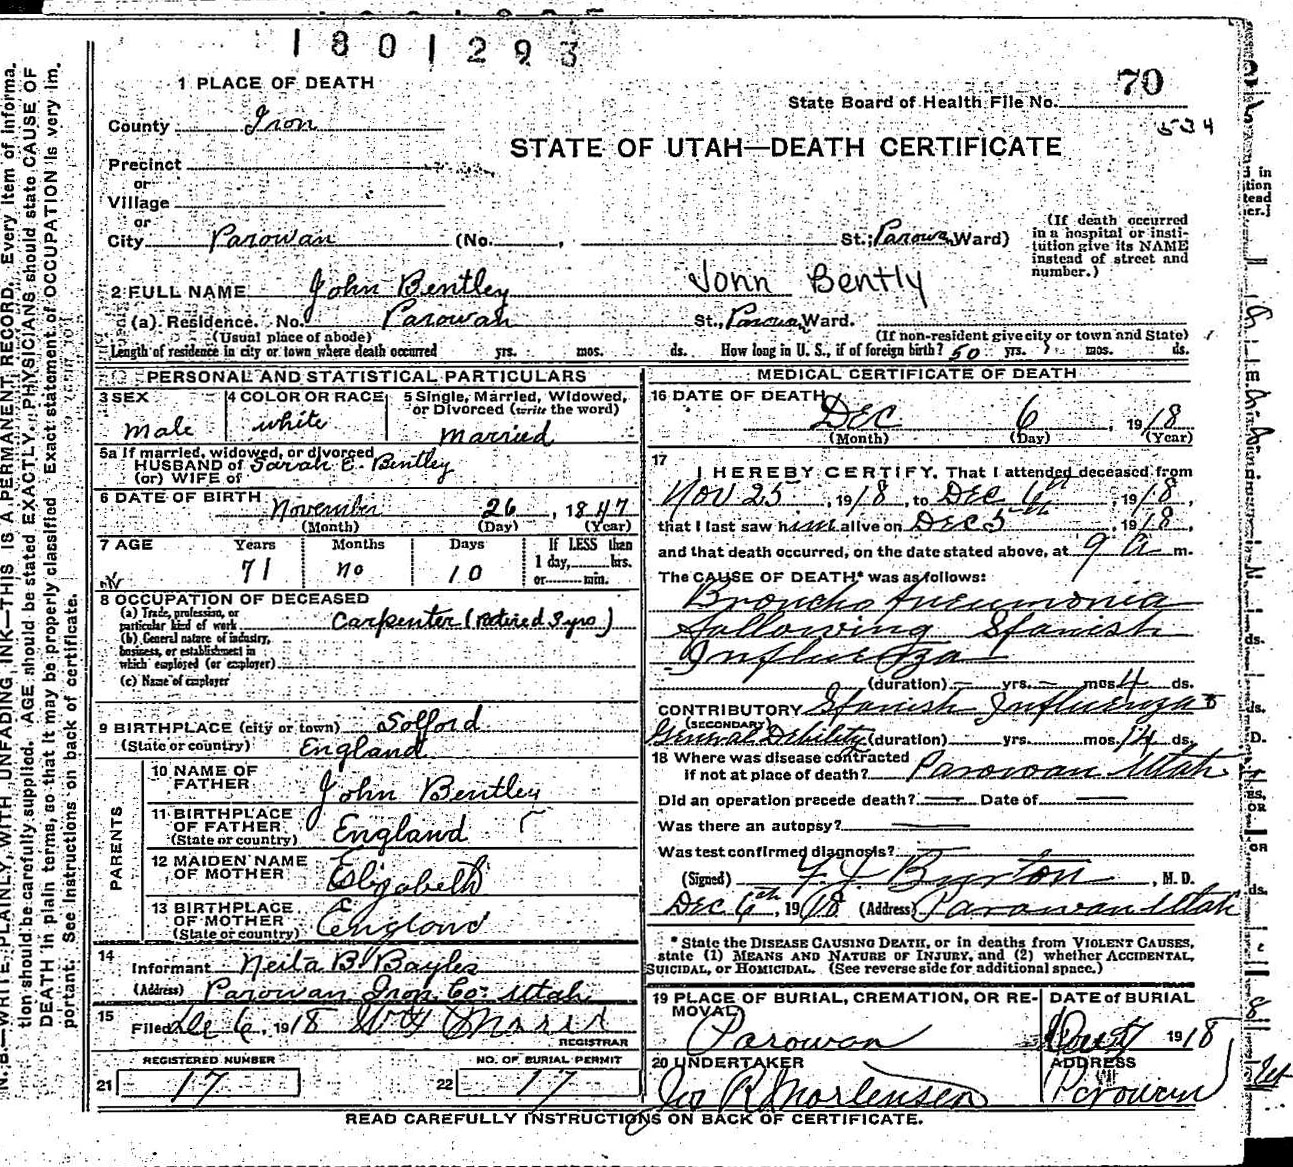 1801293
1 PLACE OF DEATH
70
State Board of Health File No.
534
County Iron
STATE OF UTAH—DEATH CERTIFICATE
Precinct
or
Village
or
City Parowan (No. , St.; Parowan Ward)
(If death occurred in a hospital or institution give its NAME instead of street and number.)
2 FULL NAME John Bentley John Bently
(a). Residence. No. Parowan St., Parowan Ward.
(Usual place of abode) (If non-resident give city or town and State)
Length of residence in city or town where death occurred yrs. mos. ds. How long in U. S., if of foreign birth? 50 yrs. mos. ds.
PERSONAL AND STATISTICAL PARTICULARS
3 SEX Male
4 COLOR OR RACE white
5 Single, Married, Widowed, or Divorced (write the word) Married
5a If married, widowed, or divorced
HUSBAND of Sarah E. Bentley
(or) WIFE of
6 DATE OF BIRTH November 26, 1847
(Month) (Day) (Year)
7 AGE Years 71 Months no Days 10 If LESS than 1 day, hrs. or min.
8 OCCUPATION OF DECEASED
(a) Trade, profession, or particular kind of work Carpenter (retired 3 yrs)
(b) General nature of industry, business, or establishment in which employed (or employer)
(c) Name of employer
9 BIRTHPLACE (city or town) Solford
(State or country) England
PARENTS
10 NAME OF FATHER John Bentley
11 BIRTHPLACE OF FATHER (State or country) England
12 MAIDEN NAME OF MOTHER Elizabeth
13 BIRTHPLACE OF MOTHER (State or country) England
14 Informant Neita B. Bayles
(Address) Parowan Iron Co. Utah
15 Filed Dec 6, 1918
REGISTRAR
REGISTERED NUMBER
21 17
NO. OF BURIAL PERMIT
22 17
MEDICAL CERTIFICATE OF DEATH
16 DATE OF DEATH Dec 6, 1918
(Month) (Day) (Year)
17 I HEREBY CERTIFY, That I attended deceased from
Nov 25, 1918, to Dec 6th, 1918,
that I last saw him alive on Dec 5th, 1918,
and that death occurred, on the date stated above, at 9 a m.
The CAUSE OF DEATH* was as follows:
Broncho Pneumonia
Following Spanish
Influenza
(duration) — yrs. — mos. 4 ds.
CONTRIBUTORY Spanish Influenza &
(SECONDARY)
General Debility (duration) yrs. mos. 14 ds.
18 Where was disease contracted
if not at place of death? Parowan Utah
Did an operation precede death? — Date of —
Was there an autopsy? —
Was test confirmed diagnosis? —
(Signed) Burton, M. D.
Dec 6th, 1918 (Address) Parowan Utah
* State the DISEASE CAUSING DEATH, or in deaths from VIOLENT CAUSES,
state (1) MEANS AND NATURE OF INJURY, and (2) whether ACCIDENTAL,
SUICIDAL, or HOMICIDAL. (See reverse side for additional space.)
19 PLACE OF BURIAL, CREMATION, OR REMOVAL Parowan
DATE of BURIAL 1918
20 UNDERTAKER Jos R Mortensen
ADDRESS Parowan
READ CAREFULLY INSTRUCTIONS ON BACK OF CERTIFICATE.
N. B.—WRITE PLAINLY, WITH UNFADING INK—THIS IS A PERMANENT RECORD. Every item of informa-
tion should be carefully supplied. AGE should be stated EXACTLY. PHYSICIANS should state CAUSE OF
DEATH in plain terms, so that it may be properly classified. Exact statement of OCCUPATION is very im-
portant. See instructions on back of certificate.